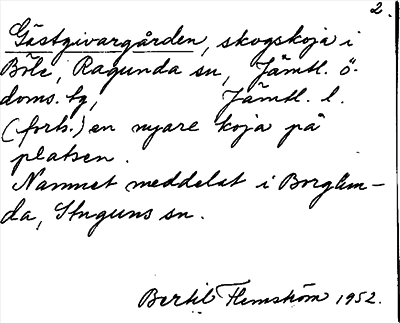 2.
Gästgivargården, skogskoja i
Böle, Ragunda sn, Jämtl. ö.
doms. tg, Jämtl. l.
(forts.) en nyare koja på
platsen.
Namnet meddelat i Borglun-
da, Stuguns sn.
Bertil Flemström 1952.